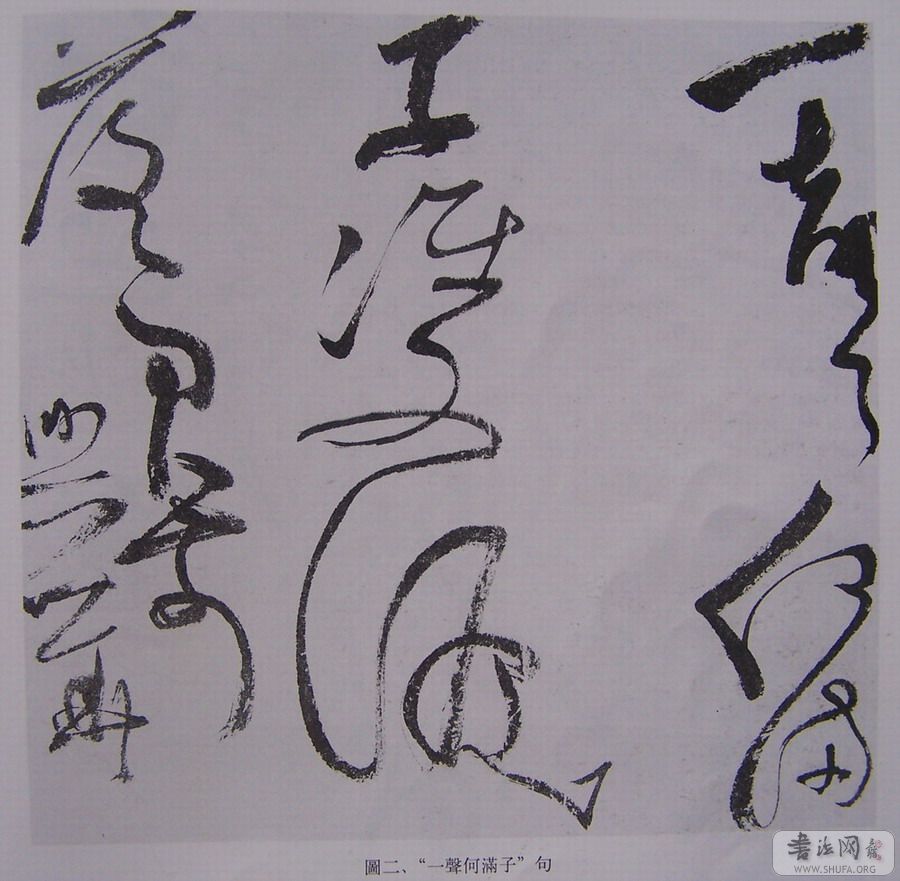 一聲何滿
子雙淚
落君前
圖二、“一聲何滿子”句
書法网
WWW.SHUFA.ORG